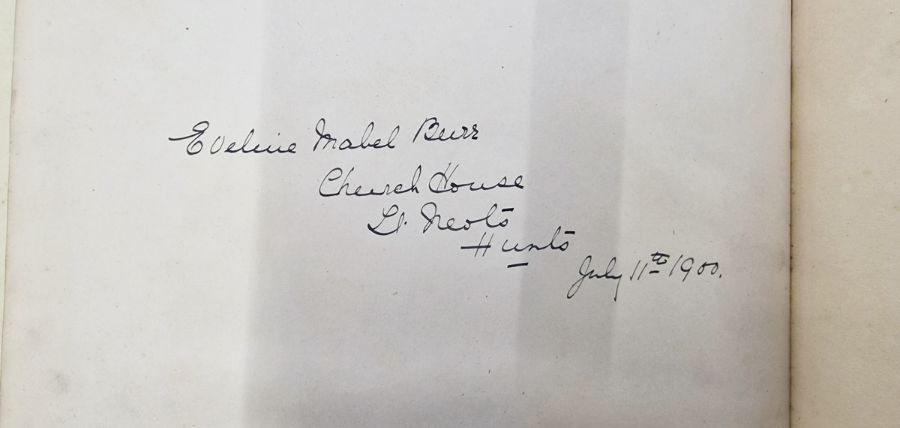 Eveline Mabel Burr
Church House
St. Neots
Hunts
July 11th 1900.